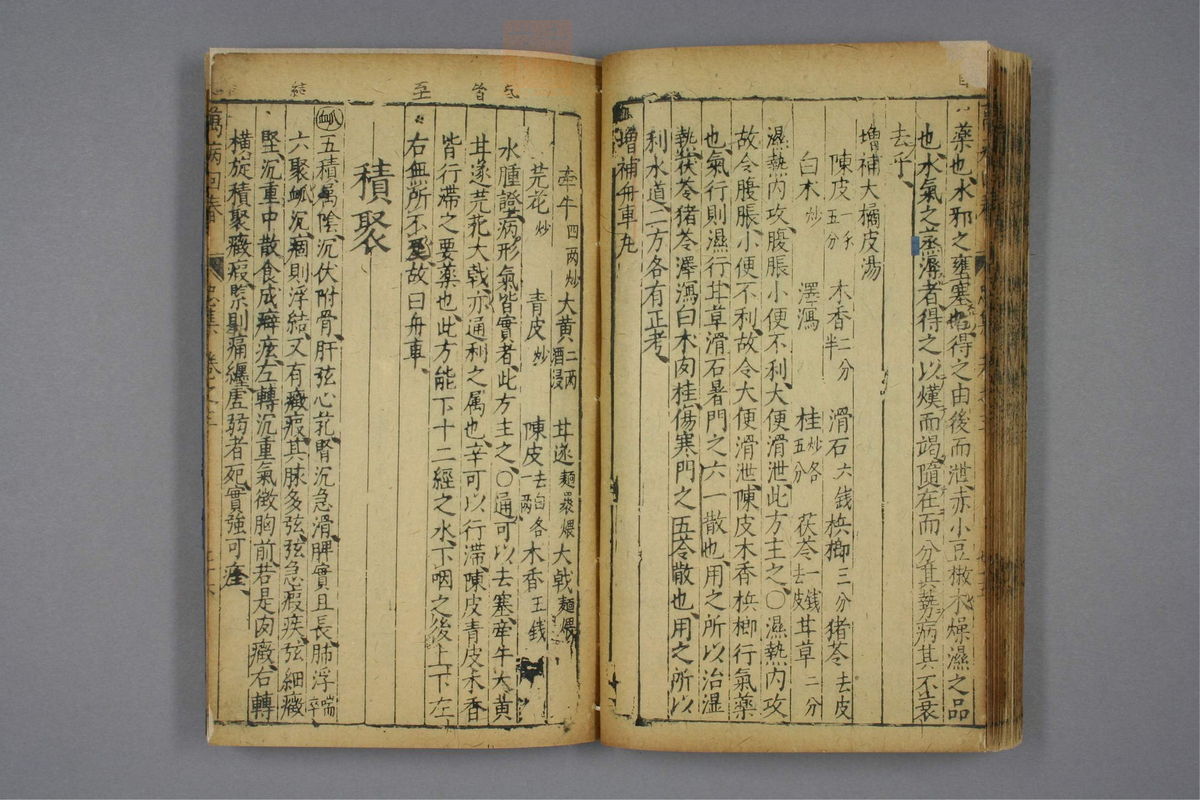 藥也、水邪之壅塞也、得之由後而泄、赤小豆椒木燥濕之品
也、水氣之蒸溽者、得之以熯而竭、隨在而分其勢、病其不衰
去乎、
增補大橘皮湯
陳皮一錢五分 木香二分半 滑石六錢 梹榔三分 猪苓去皮
白朮炒 澤瀉 桂炒各五分 茯苓去皮一錢 甘草二分
濕熱內攻、腹脹小便不利、大便滑泄、此方主之、〇濕熱內攻
故令腹脹、小便不利、故令大便滑泄、陳皮木香梹榔行氣藥
也、氣行則濕行、甘草滑石暑門之六一散也、用之所以治湿
熱、茯苓猪苓澤瀉白朮肉桂、傷寒門之五苓散也、用之所以
利水道、二方各有正考、
增補舟車丸
牽牛四两炒 大黄二两酒浸 甘遂麺裹煨 大戟麺煨
芫花炒 青皮炒 陳皮去白各一两 木香五錢
水腫證、病形氣皆實者、此方主之、〇通可以去塞、牽牛大黄
甘遂芫花大戟、亦通利之属也、辛可以行滞、陳皮青皮木香
皆行滞之要藥也、此方能下十二經之水、下咽之後、上下左
右無所不至、故曰舟車、
積聚
五積属陰、沉伏附骨、肝弦心芤、腎沉急滑、脾實且長、肺浮喘卒
六聚沉痼則浮結、又有癥瘕、其脉多弦、弦急瘕疾、弦細癥
堅、沉重中散、食成癖痃、左轉沉重、氣徴胸前、若是肉癥、右轉
横旋、積聚癥瘕、緊則痛纒、虛弱者死、實強可痊、
萬病回春 忠集 卷之三